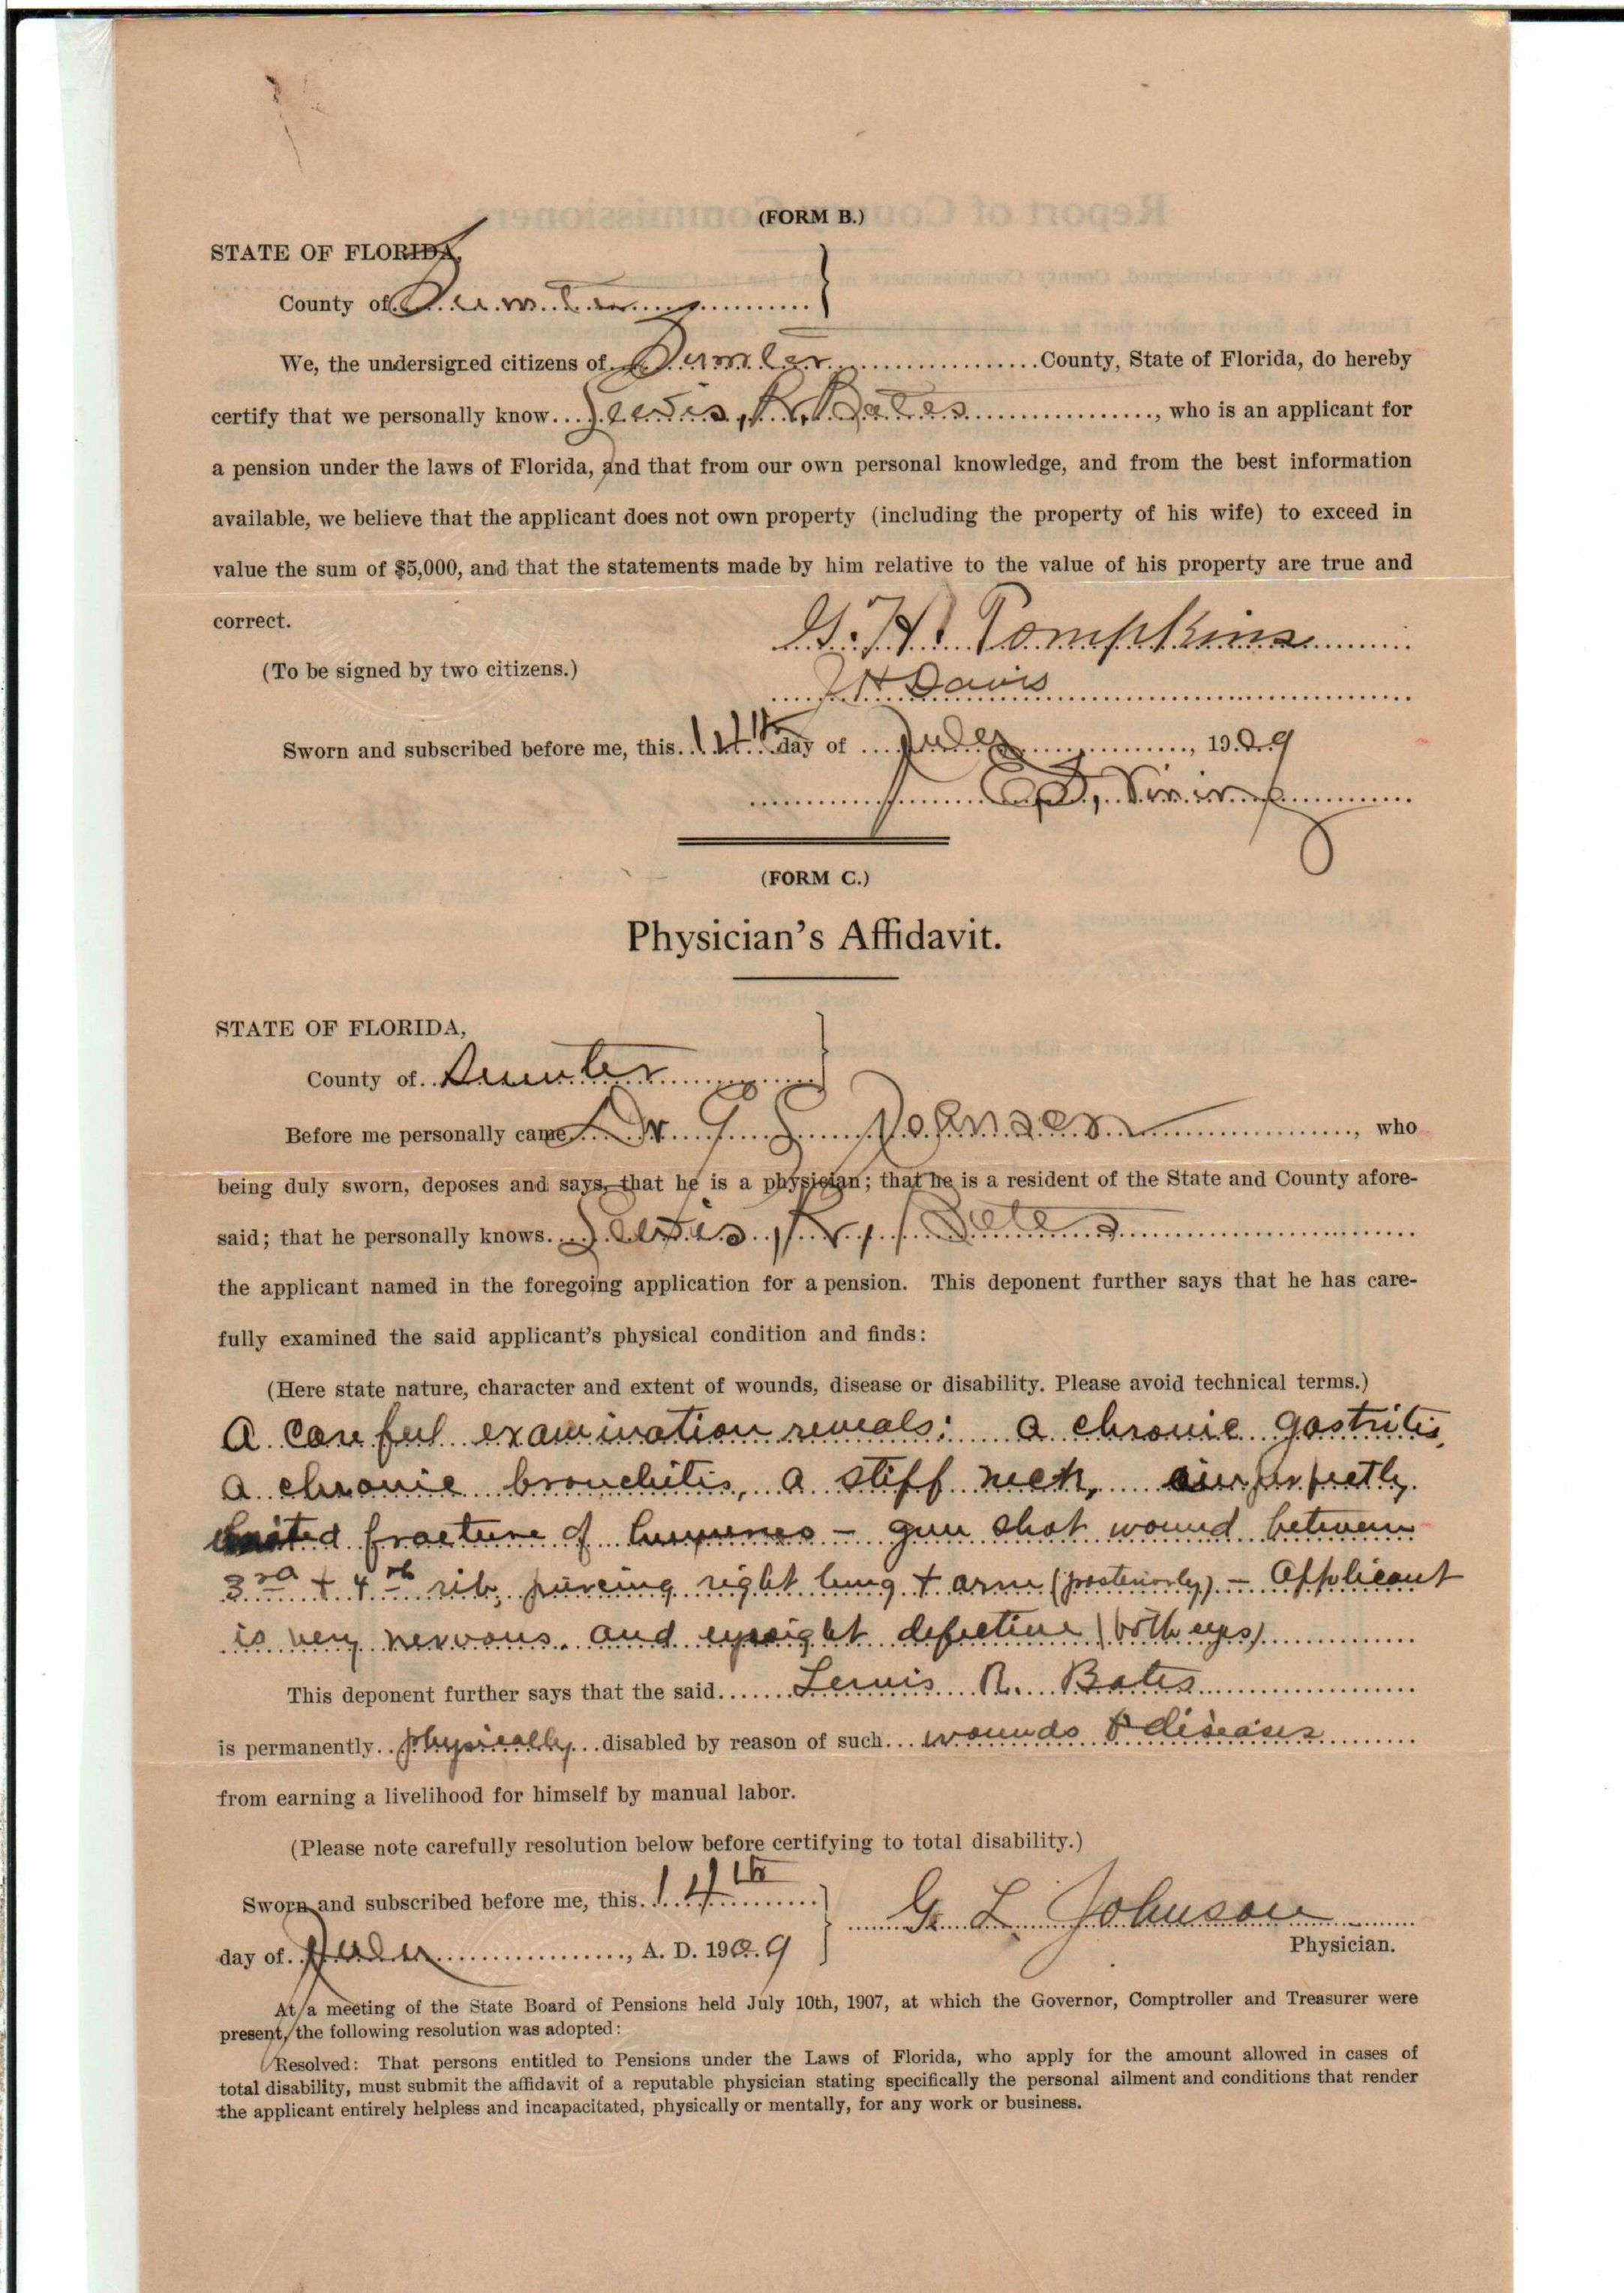 (FORM B.)
STATE OF FLORIDA,
County of Sumter
We, the undersigned citizens of Sumter County, State of Florida, do hereby
certify that we personally know Lewis, R, Bates, who is an applicant for
a pension under the laws of Florida, and that from our own personal knowledge, and from the best information
available, we believe that the applicant does not own property (including the property of his wife) to exceed in
value the sum of $5,000, and that the statements made by him relative to the value of his property are true and
correct.
G. H. Tompkins
(To be signed by two citizens.)
J H Davis
Sworn and subscribed before me, this 14th day of July, 1909
(FORM C.)
Physician's Affidavit.
STATE OF FLORIDA,
County of Sumter
Before me personally came Dr G L Johnson, who
being duly sworn, deposes and says, that he is a physician; that he is a resident of the State and County afore-
said; that he personally knows Lewis, R, Bates
the applicant named in the foregoing application for a pension. This deponent further says that he has care-
fully examined the said applicant's physical condition and finds:
(Here state nature, character and extent of wounds, disease or disability. Please avoid technical terms.)
A careful examination reveals: a chronic gastritis,
a chronic bronchitis, a stiff neck, imperfectly
united fracture of humerus – gun shot wound between
3rd + 4th rib, piercing right lung + arm (posteriorly) – Applicant
is very nervous. and eyesight defective (both eyes)
This deponent further says that the said Lewis R. Bates
is permanently physically disabled by reason of such wounds & diseases
from earning a livelihood for himself by manual labor.
(Please note carefully resolution below before certifying to total disability.)
Sworn and subscribed before me, this 14th
G. L. Johnson
day of July, A. D. 1909
Physician.
At a meeting of the State Board of Pensions held July 10th, 1907, at which the Governor, Comptroller and Treasurer were
present, the following resolution was adopted:
Resolved: That persons entitled to Pensions under the Laws of Florida, who apply for the amount allowed in cases of
total disability, must submit the affidavit of a reputable physician stating specifically the personal ailment and conditions that render
the applicant entirely helpless and incapacitated, physically or mentally, for any work or business.